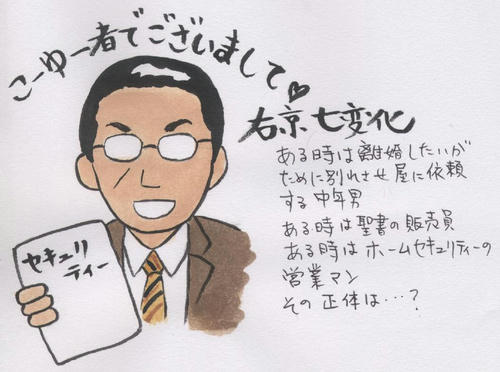 こーゆー者でございまして♥
右京七変化
ある時は離婚したいが
ために別れさせ屋に依頼
する中年男
ある時は聖書の販売員
ある時はホームセキュリティーの
営業マン
その正体は…?
セキュリ
ティー